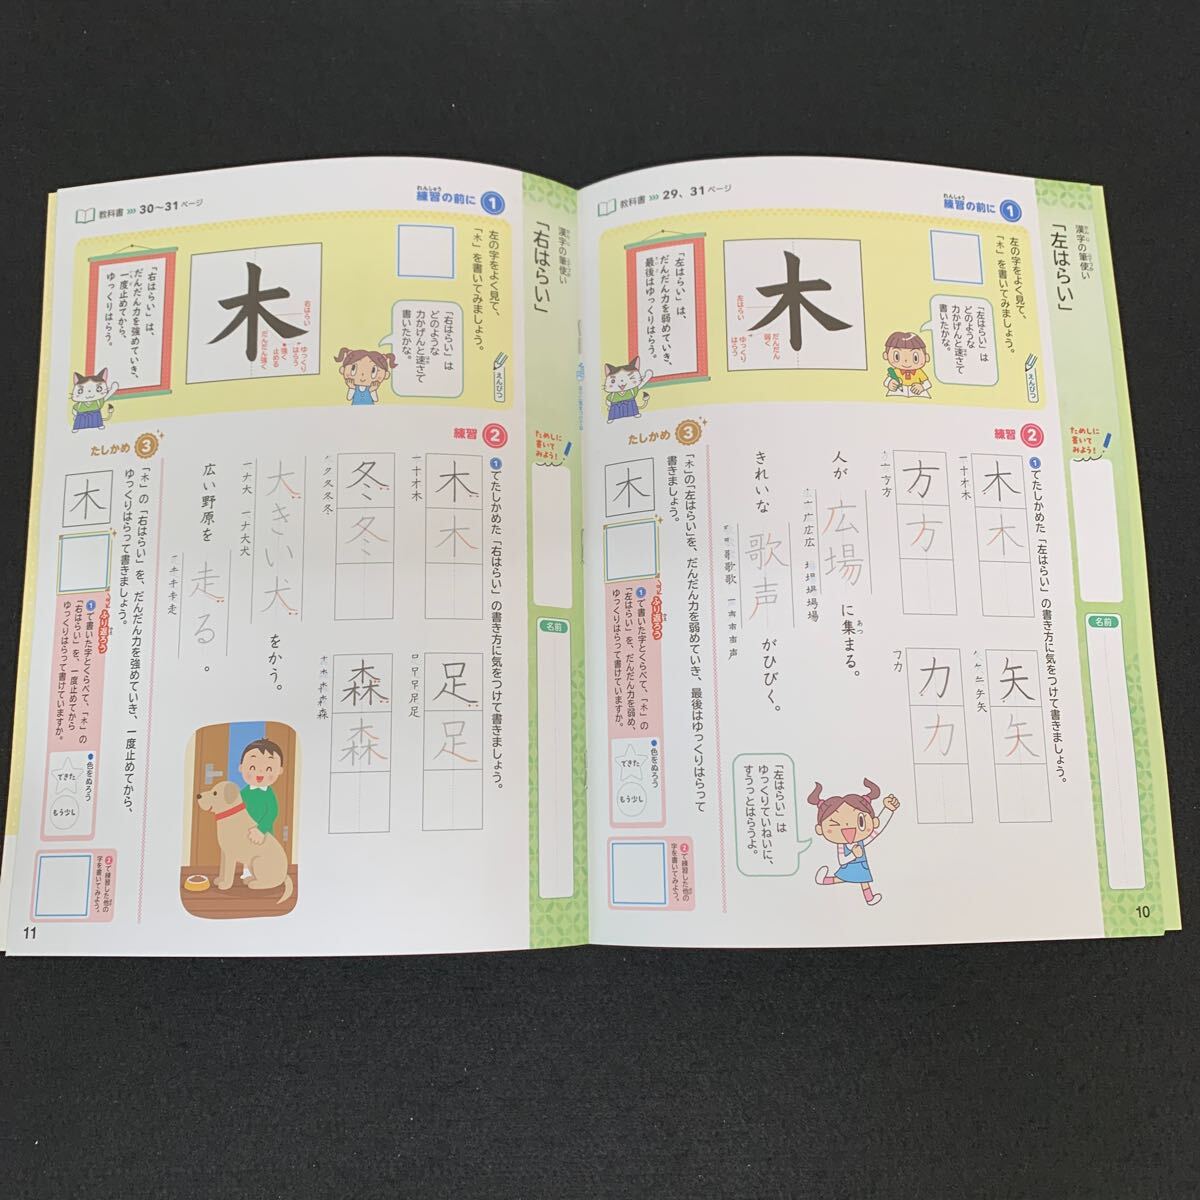 漢字の筆使い
「左はらい」
ためしに
書いて
みよう！
名前
10
教科書 29、31ページ
練習の前に 1
左の字をよく見て、
「木」を書いてみましょう。
えんぴつ
「左はらい」は
どのような
力かげんと速さで
書いたかな。
木
左はらい
だんだん
弱く
ゆっくり
はらう
「左はらい」は、
だんだん力を弱めていき、
最後はゆっくりはらう。
練習 2
1でたしかめた「左はらい」の書き方に気をつけて書きましょう。
一十才木
木
木
矢
矢
方
方
フカ
力
力
人が
広場
に集まる。
きれいな
歌声
がひびく。
「左はらい」は
ゆっくりていねいに、
すうっとはらうよ。
たしかめ 3
「木」の「左はらい」を、だんだん力を弱めていき、最後はゆっくりはらって
書きましょう。
木
ふり返ろう
1で書いた字とくらべて、「木」の
「左はらい」を、だんだん力を弱め、
ゆっくりはらって書けていますか。
色をぬろう
できた
もう少し
2で練習した他の
字を書いてみよう。
「右はらい」
名前
11
教科書 30〜31ページ
練習の前に 1
左の字をよく見て、
「木」を書いてみましょう。
えんぴつ
「右はらい」は
どのような
力かげんと速さで
書いたかな。
木
右はらい
だんだん強く
強く
止める
ゆっくり
はらう
「右はらい」は、
だんだん力を強めていき、
一度止めてから、
ゆっくりはらう。
練習 2
1でたしかめた「右はらい」の書き方に気をつけて書きましょう。
一十才木
木
木
足
足
冬
冬
森
森
一ナ大
一ナ大犬
大きい犬
をかう。
広い野原を
走る
。
たしかめ 3
「木」の「右はらい」を、だんだん力を強めていき、一度止めてから、
ゆっくりはらって書きましょう。
木
ふり返ろう
1で書いた字とくらべて、「木」の
「右はらい」を、一度止めてから
ゆっくりはらって書けていますか。
色をぬろう
できた
もう少し
2で練習した他の
字を書いてみよう。